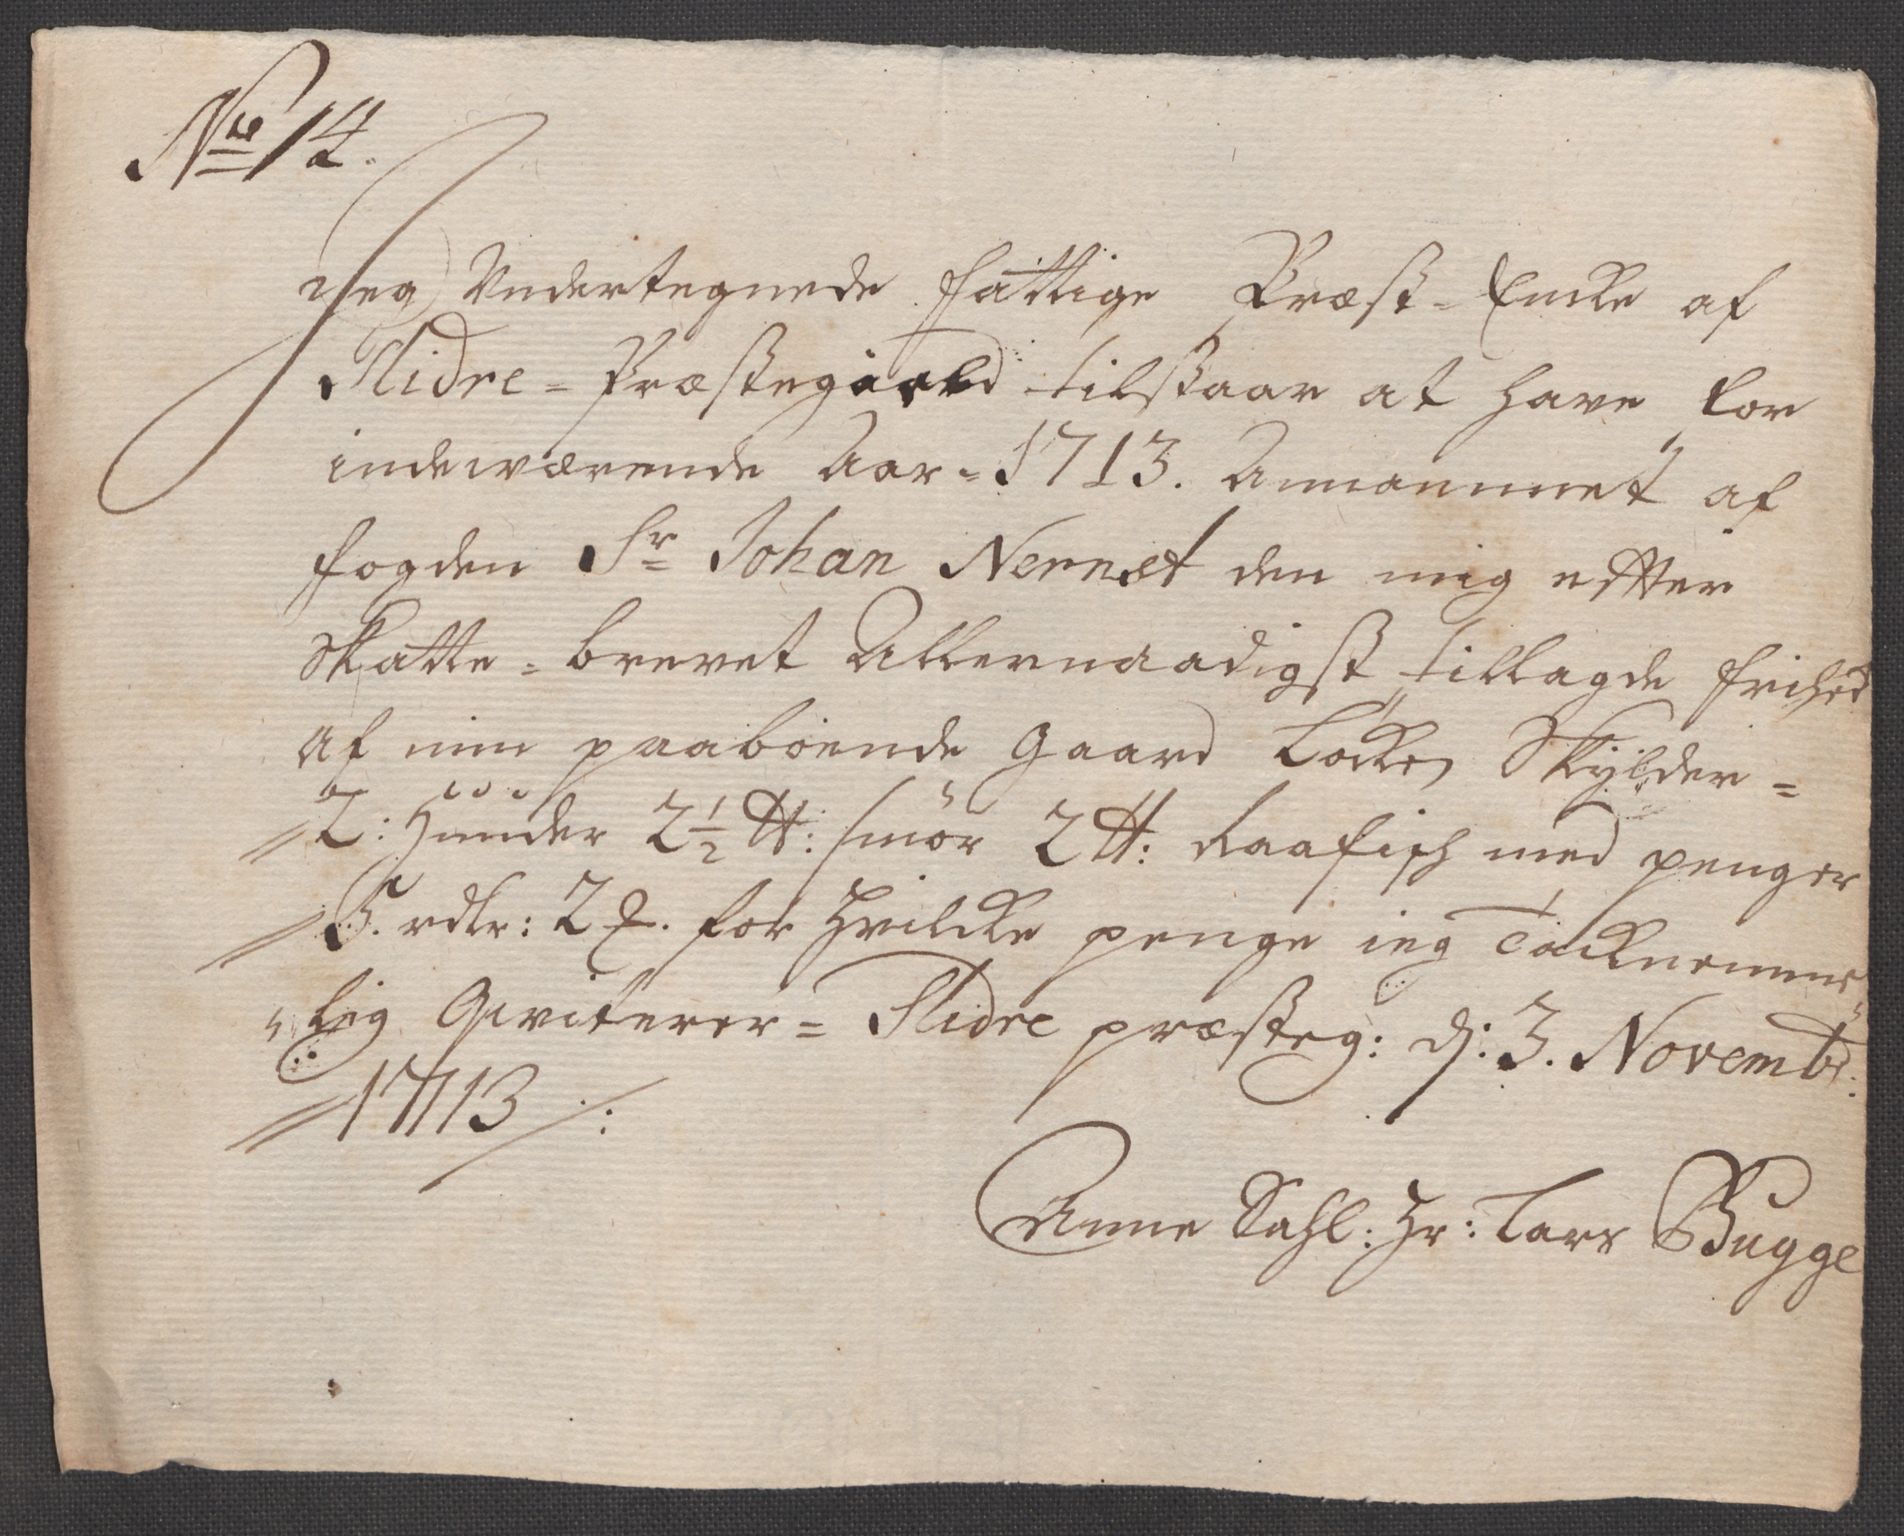 No 14.
Jeg Undertegnede fattige Præst-Encke af
Slidre-Præstegield tilstaar at have for
indeværende Aar-1713. Annammet af
fogden Sr Johan Nernst den mig efter
Skatte-brevet Allernaadigst tillagde frihed
af min paaboende Gaard Løcke, Skylder-
2: Huuder 2½ ℔: smör 2 ℔: Raafisch med penger
5. rdlr: 2 for Hvilcke penge ieg Tacknemme-
lig Qviterer- Slidre præsteg: d: 3. Novembr:
1713
Anne Sahl: Hr: Lars Bugge